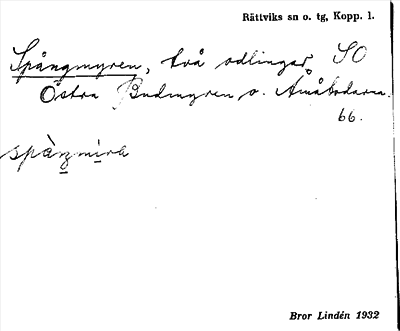 Rättviks sn o. tg, Kopp. l.
Spångmyren, två odlingar SO
Östra Budmyren o. Åmåbodarna.
66.
Bror Lindén 1932